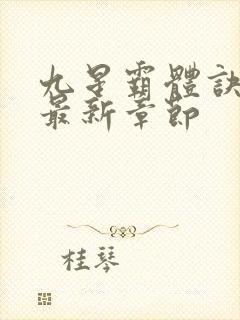 九星霸體訣
最新章節
桂琴